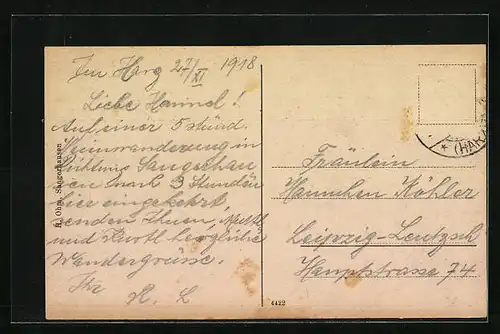 Im Harz 27/XI 1918
Liebe Hannel!
Auf einer 5 stünd.
in
Richtung Sangerhau
sen nach 3 Stunden
hier eingekehrt
senden Ihnen,
und Kurtl herzliche
Wandergrüsse.
Ihr
R. L.
H. Ohm, Sangerhausen
4422
* (HARZ)
Fräulein
Hannchen Köhler
Leipzig-Leutzsch
Hauptstrasse 74